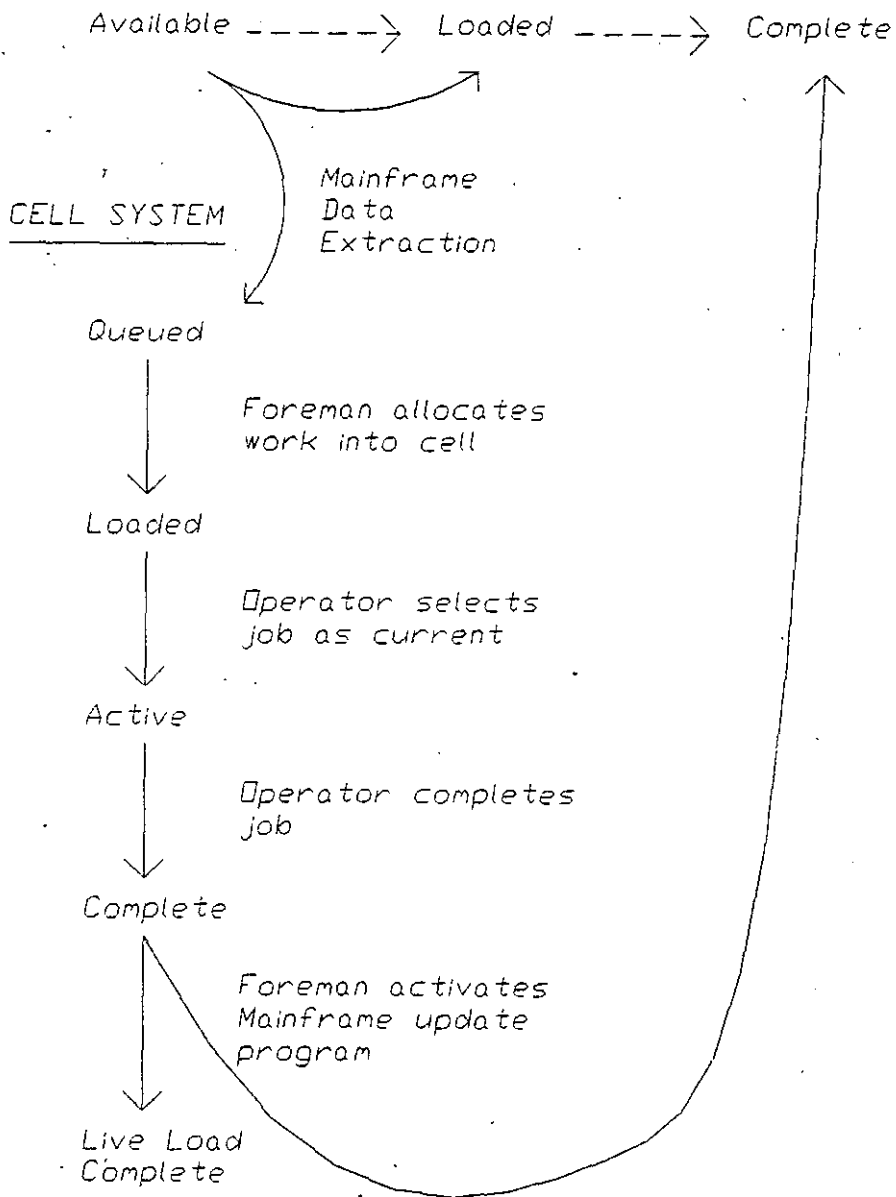 Available Loaded Complete
Mainframe
Data
Extraction
CELL SYSTEM
Queued
Foreman allocates
work into cell
Loaded
Operator selects
job as current
Active
Operator completes
job
Complete
Foreman activates
Mainframe update
program
Live Load
Complete